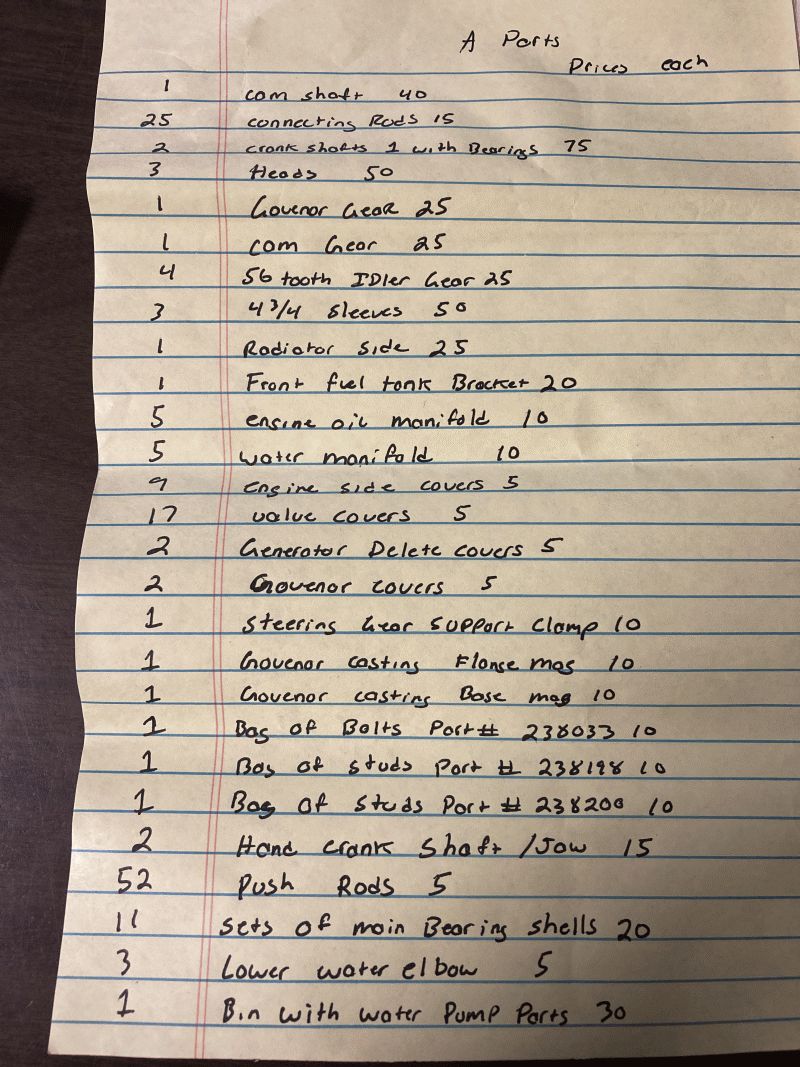 A Parts
Prices each
1 cam shaft 40
25 connecting Rods 15
2 crank shafts 1 with Bearings 75
3 Heads 50
1 Govenor Gear 25
1 cam Gear 25
4 56 tooth IDler Gear 25
3 4 3/4 sleeves 50
1 Radiator side 25
1 Front fuel tank Bracket 20
5 engine oil manifold 10
5 water manifold 10
9 engine side covers 5
17 value covers 5
2 Generator Delete covers 5
2 Govenor covers 5
1 Steering Gear support clamp 10
1 Govenor casting Flange mag 10
1 Govenor casting Base mag 10
1 Bag of Bolts Part# 238033 10
1 Bag of studs Part # 238198 10
1 Bag of Studs Part # 238200 10
2 Hand crank Shaft /Jaw 15
52 Push Rods 5
11 sets of main Bearing shells 20
3 Lower water elbow 5
1 Bin with water Pump Parts 30